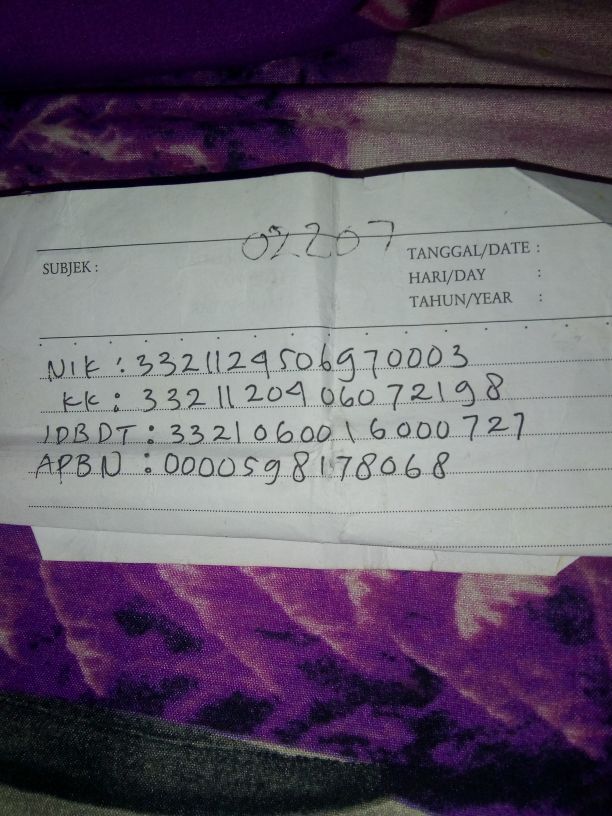 SUBJEK :
TANGGAL/DATE :
HARI/DAY :
TAHUN/YEAR :
NIK : 3321124506970003
KK : 3321120406072198
IDBDT : 3321060016000727
APBN : 0000598178068